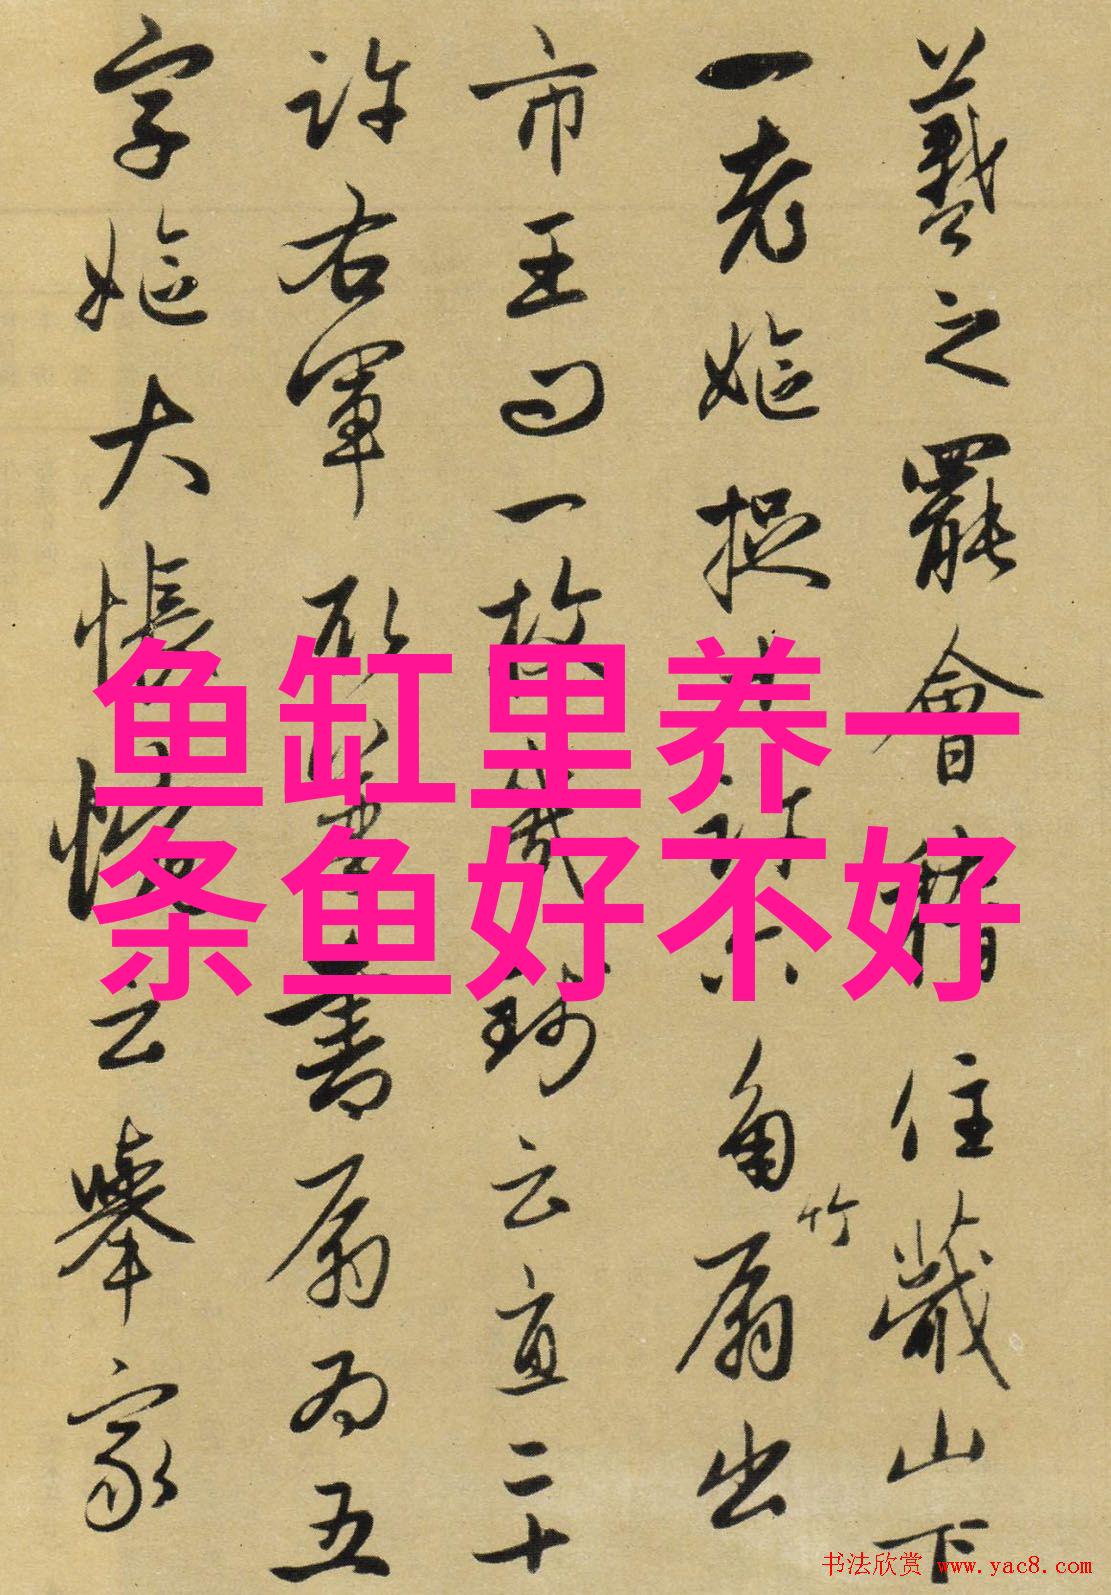 鱼缸里养一
条鱼好不好
羲之罷會稽住蕺山下
一老嫗捉十許六角竹扇出
市王問一枚幾錢云直二十
許右軍取筆書扇為五
字嫗大悵惋云舉家
书法欣赏 www.yac8.com